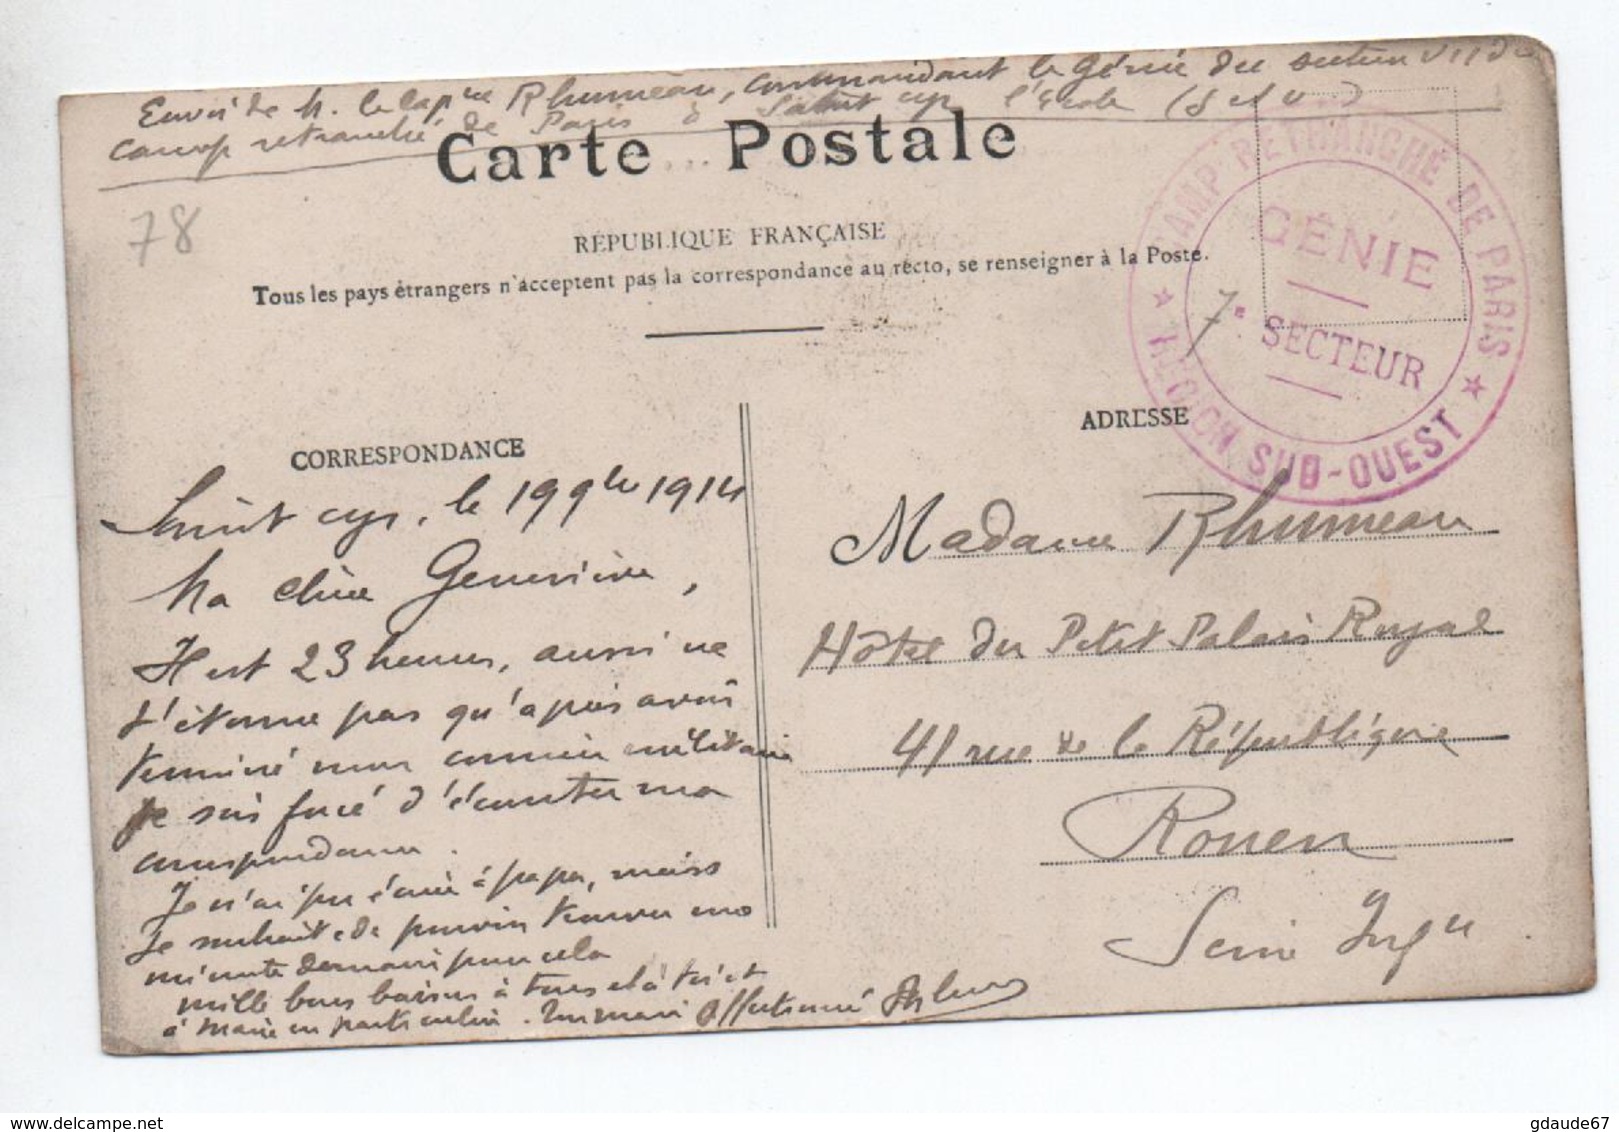 Envoi de M. le capne Rhumeau, commandant le Génie du secteur VII du
camp retranché de Paris à Saint cyr l'École (S et O)
Carte Postale
78
RÉPUBLIQUE FRANÇAISE
Tous les pays étrangers n'acceptent pas la correspondance au recto, se renseigner à la Poste.
CAMP RETRANCHÉ DE PARIS
GÉNIE
7e SECTEUR
★ RÉGION SUD-OUEST ★
CORRESPONDANCE
Saint cyr, le 19 9bre 1914
Ma chère Geneviève,
Il est 23 heures, aussi ne
t'étonne pas qu'après avoir
terminé mon courrier militaire
je sois forcé d'écourter ma
correspondance.
Je n'ai pu écrire à papa, mais
je souhaite de pouvoir trouver une
minute demain pour cela
mille bons baisers à tous et à toi et
à Marie en particulier. Ton mari affectionné Rhumeau
ADRESSE
Madame Rhumeau
Hôtel du Petit Palais Royal
41 rue de la République
Rouen
Seine Infre
gdaude67